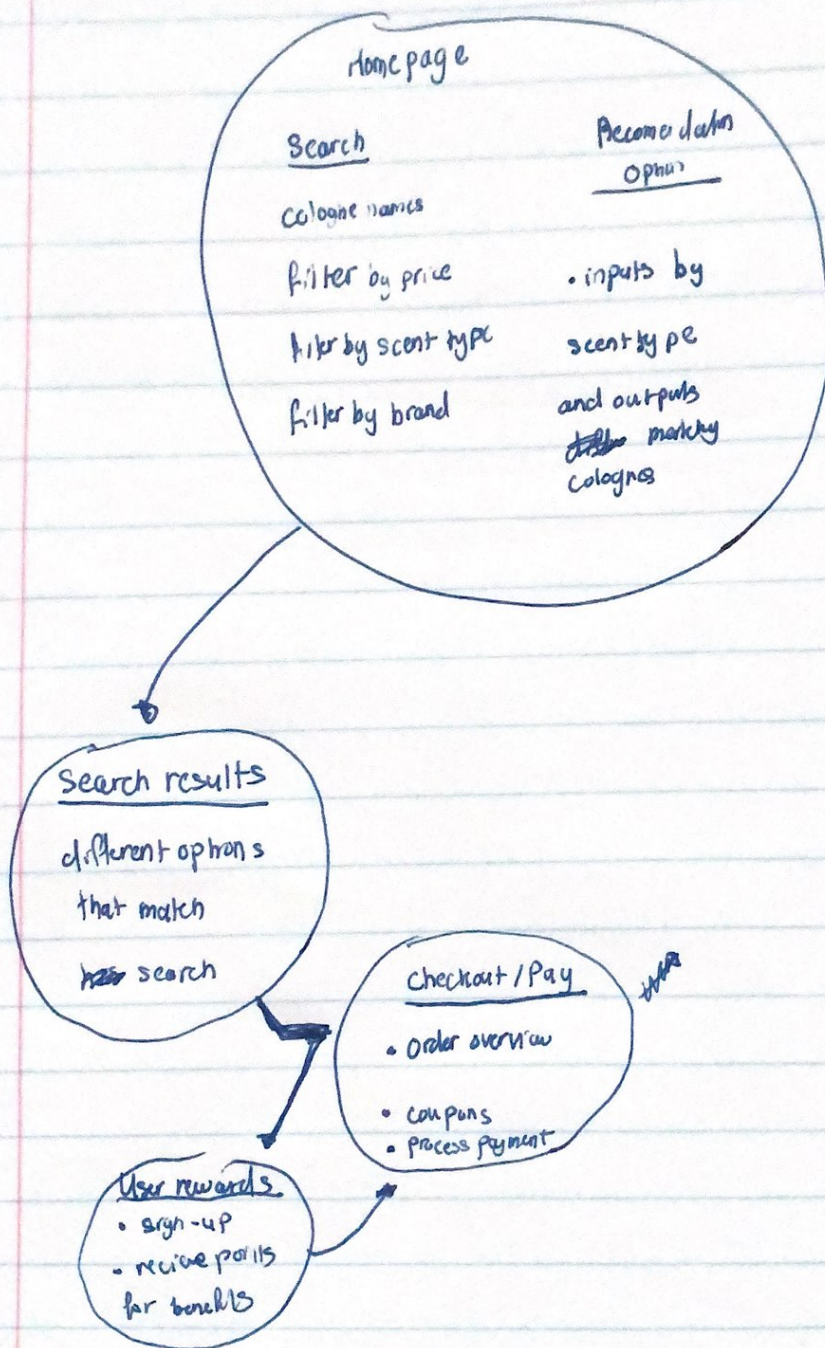 Homepage
Search
cologne names
filter by price
filter by scent type
filter by brand
Recomendation
option
. inputs by
scent type
and outputs
colognes
Search results
different options
that match
search
Checkout/Pay
• Order overview
• coupons
• process payment
User rewards
• sign-up
• recieve points
for benefits